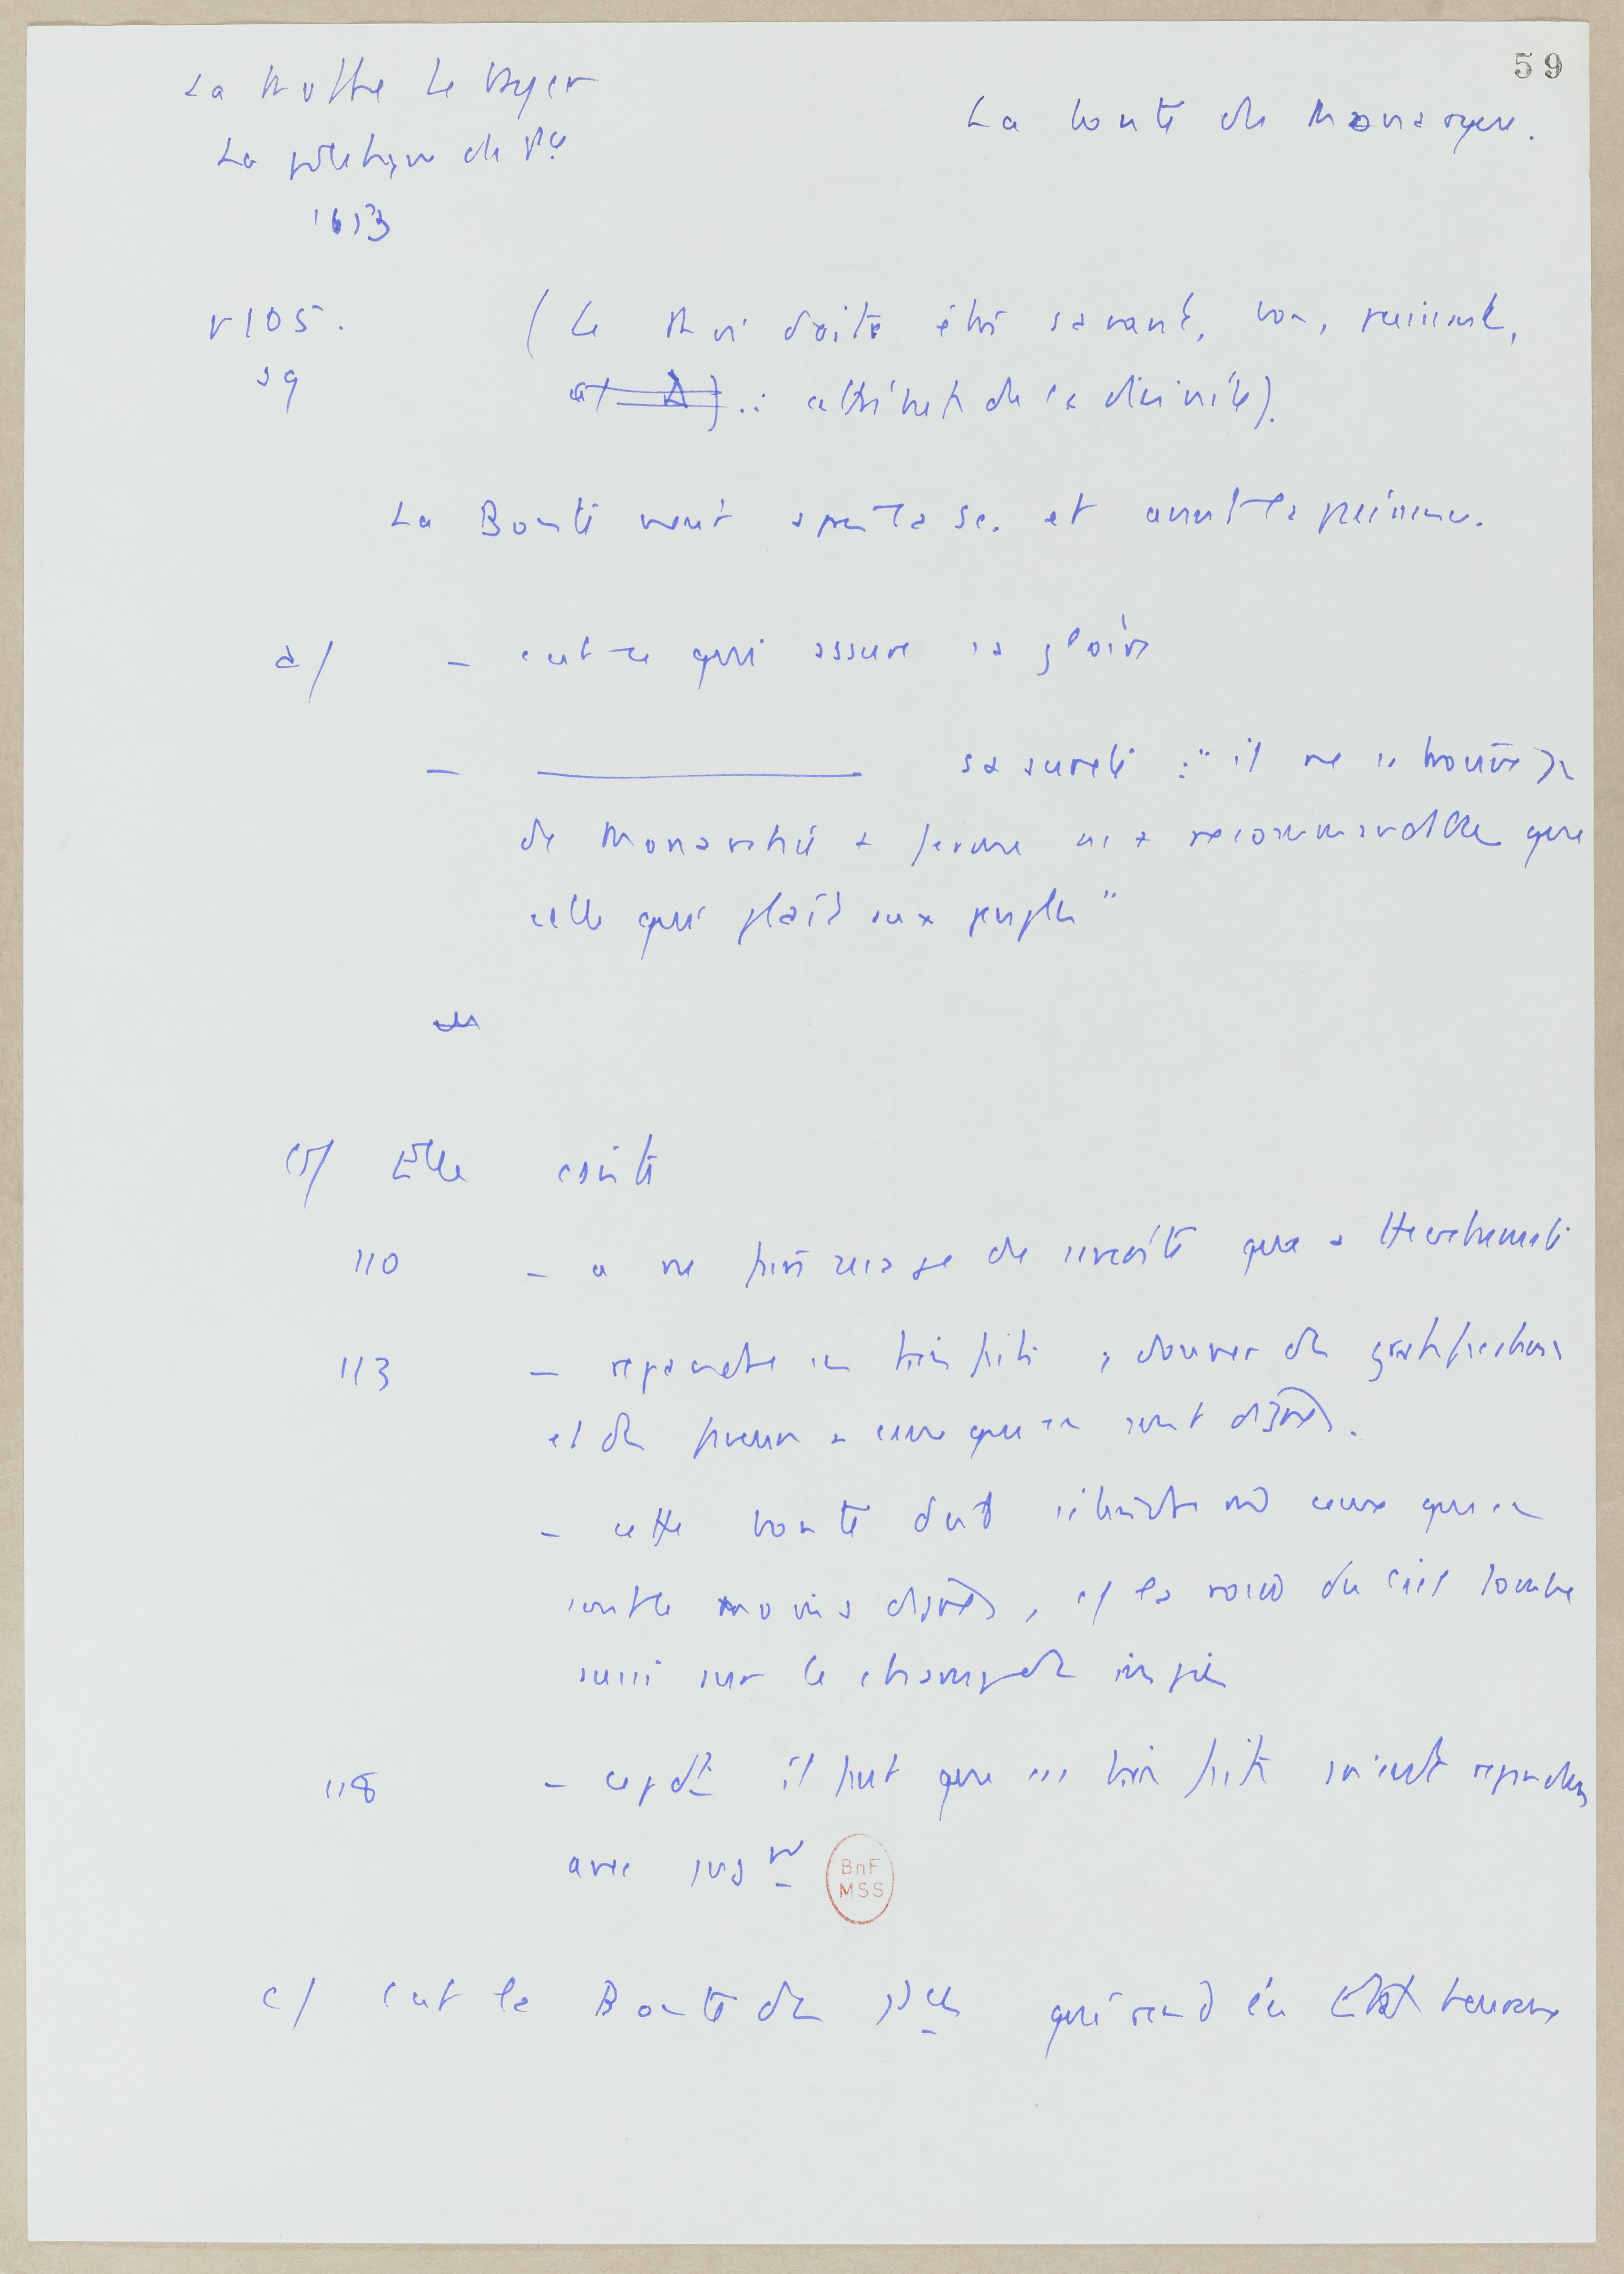 59
La Mothe Le Vayer
La bonté du Monarque.
La politique du Pce
1653
p 105.
sq
(Le Roi doit être savant, bon, puissant,
: attributs de la divinité).
La Bonté vient après la Sc. et avant la puissance.
a/ - c'est ce qui assure sa gloire
- ———— sa sureté : "il ne se trouve
de Monarchie + ferme ni + recommandable que
celle qui plaît aux peuples"
b/ Elle consiste
110 - a ne faire usage de sévérité que
113 - répandre ses bienfaits ; donner des gratifications
et des faveurs a ceux qui en sont dignes.
- cette bonté doit s'étendre vers ceux qui en
sont le moins dignes, cf la rosée du ciel tombe
aussi sur le champ des impies
118 - cepdt il faut que ses bienfaits soient répandus
avec
BnF
MSS
c/ C'est la Bonté des Pces qui rend les Etats heureux